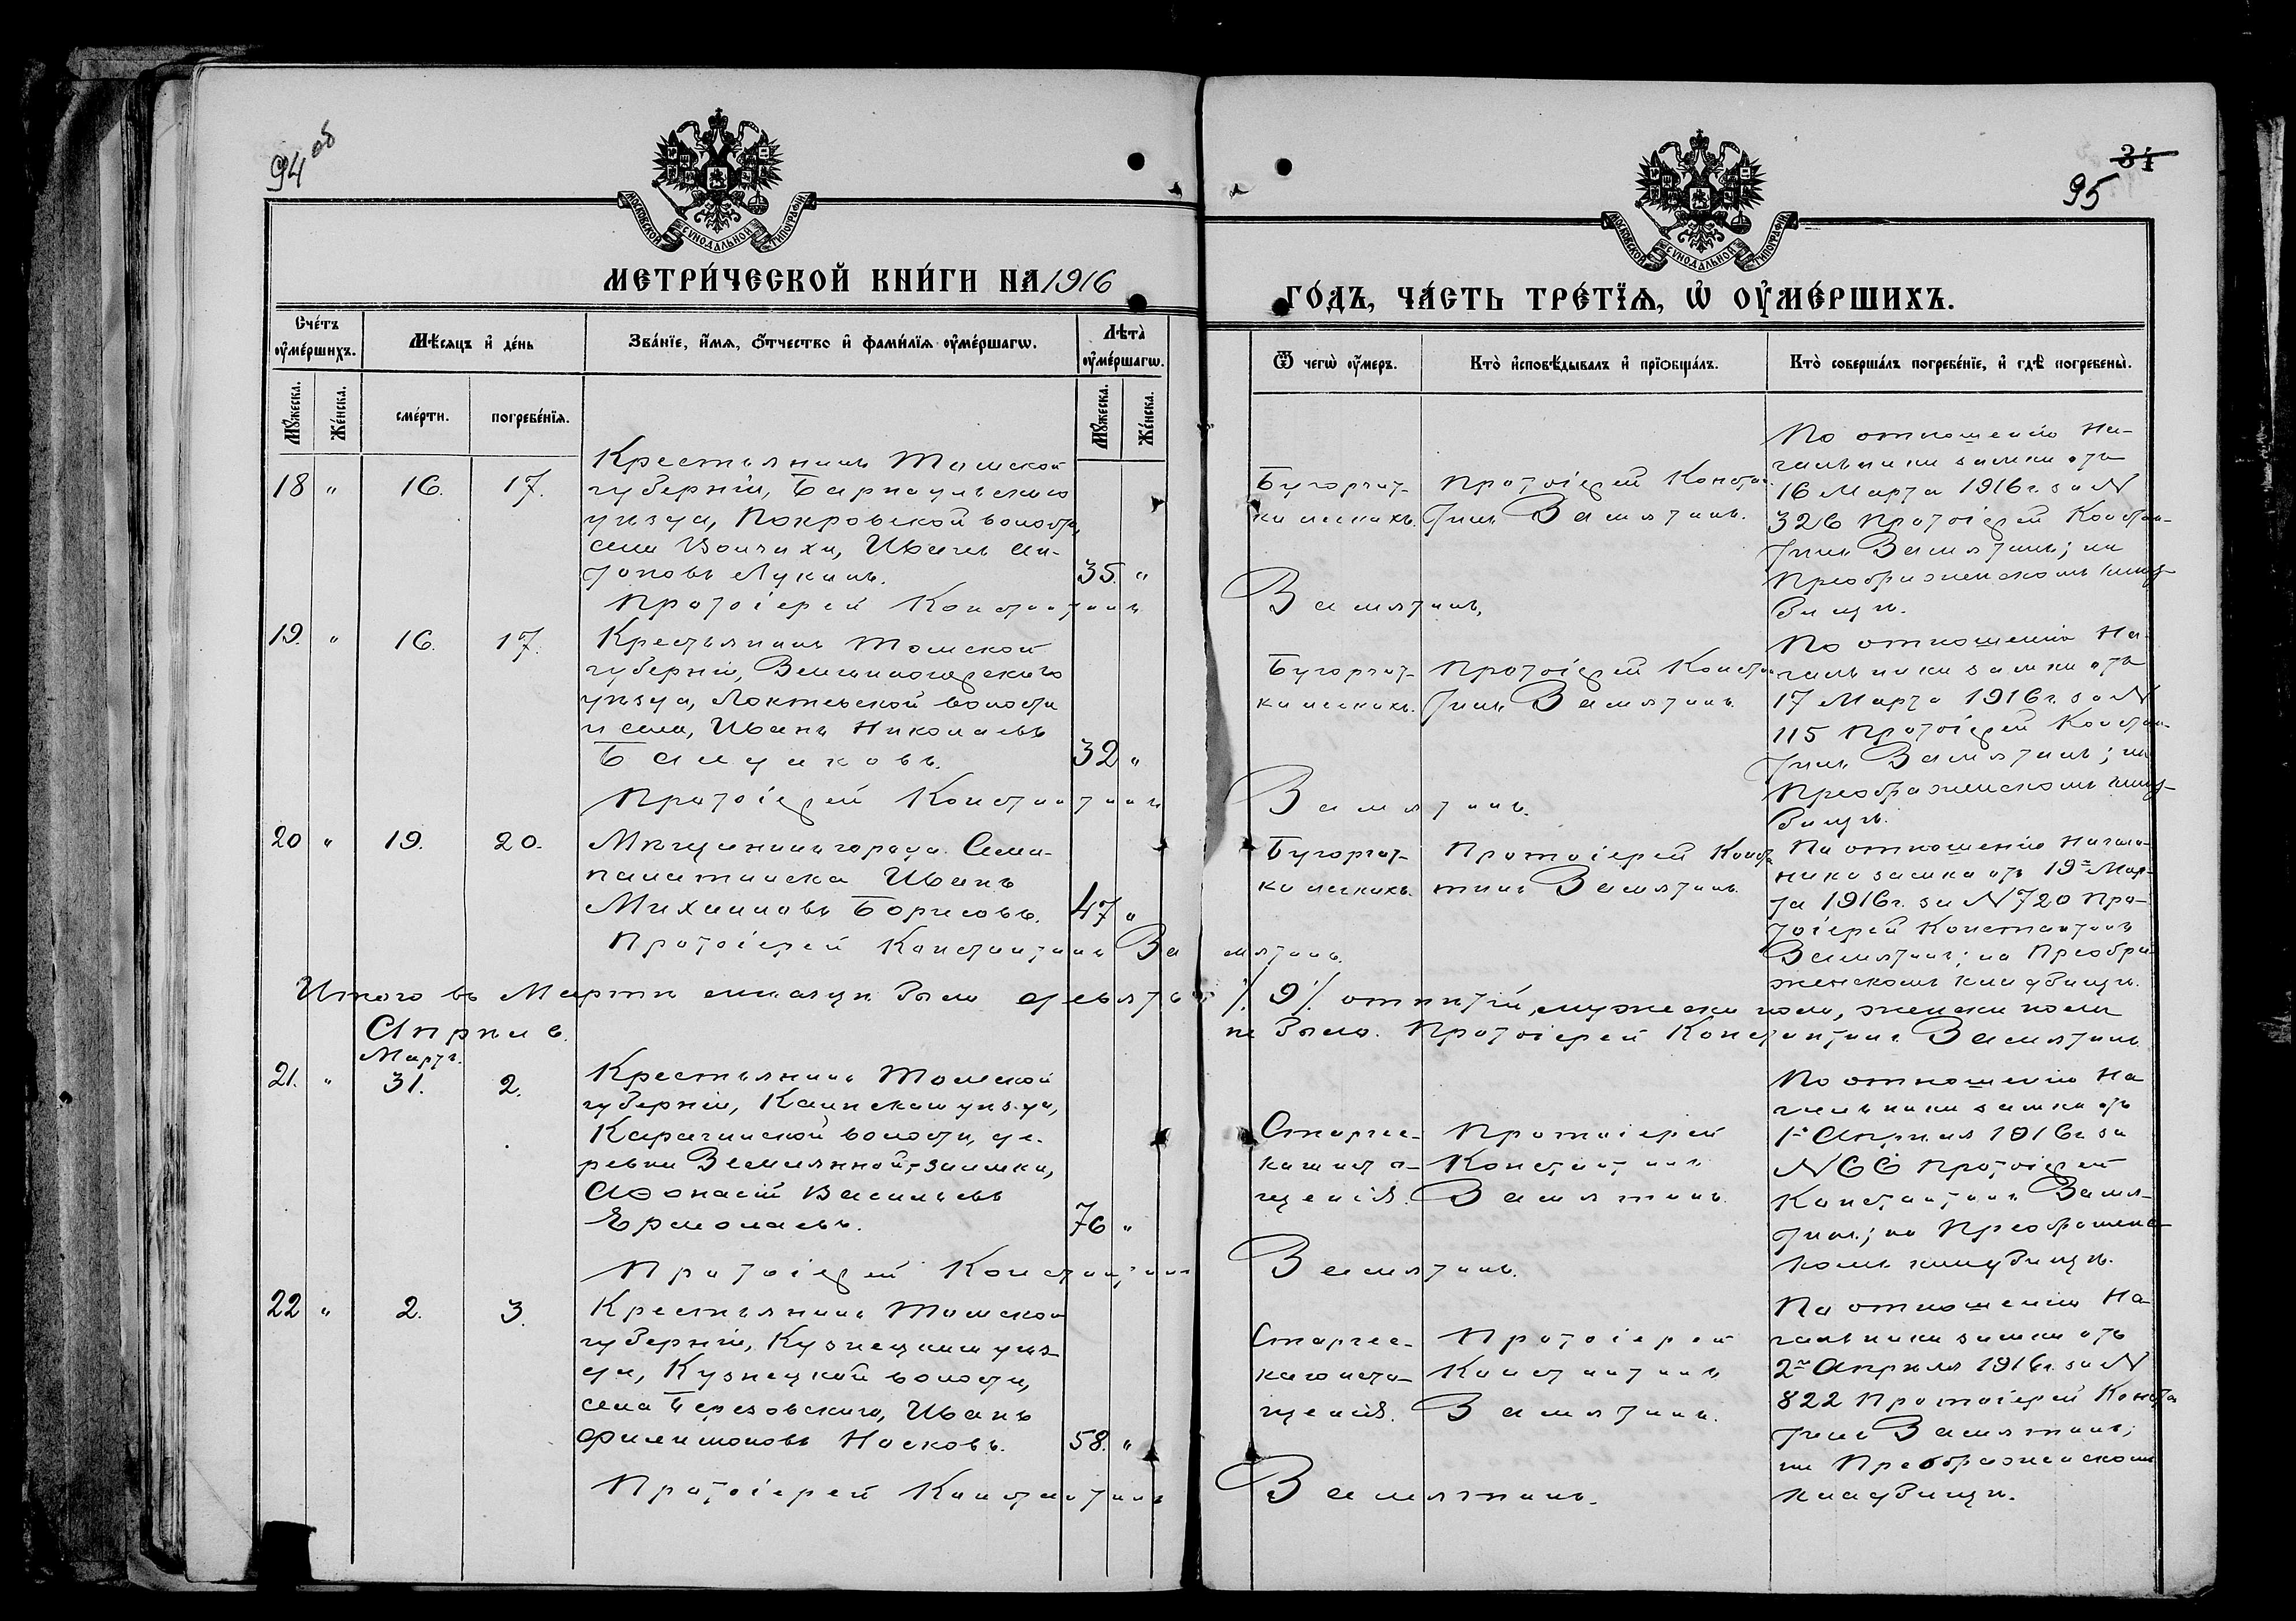 94 об
МОСКОВСКОЙ СѴНОДАЛЬНОЙ ТИПОГРАФІИ
МЕТРИ́ЧЕСКОЙ КНИ́ГИ НА 1916
Сче́тъ ᲂу҆ме́ршихъ.
Мѣ́сяцъ и҆ де́нь
Зва́нїе, и҆́мѧ, ѻ҆́тчество и҆ фами́лїѧ ᲂу҆ме́ршагѡ.
Лѣта̀ ᲂу҆ме́ршагѡ.
Мꙋ́жеска.
Же́нска.
сме́рти.
погребе́нїѧ.
Мꙋ́жеска.
Же́нска.
18 " 16. 17.
Крестьянинъ Томской
губерніи, Барнаульскаго
уѣзда, Покровской волости,
села Волчихи, Иванъ Ан-
тоновъ Лукинъ. 35. "
Протоіерей Константинъ
19. " 16. 17.
Крестьянинъ Томской
губерніи, Змѣиногорскаго
уѣзда, Локтевской волости
и села, Иванъ Николаевъ
32 "
Протоіерей Константинъ
20 " 19. 20.
Мѣщанинъ города Семи-
палатинска Иванъ
Михаиловъ Борисовъ. 47 "
Протоіерей Константинъ За
Итого въ Мартѣ мѣсяцѣ было девять
Апрѣль.
Марта.
21. " 31. 2.
Крестьянинъ Томской
губерніи, Каинскаго уѣзда,
Карачинской волости, де-
ревни Землянной-заимки,
Афонасій Васильевъ
Ермолаевъ. 76 "
Протоіерей Константинъ
22 " 2. 3.
Крестьянинъ Томской
губерніи, Кузнецкаго уѣз-
да, Кузнецкой волости,
села Березовскаго, Иванъ
Филимоновъ Носковъ. 58. "
Протоіерей Константинъ
34
95
МОСКОВСКОЙ СѴНОДАЛЬНОЙ ТИПОГРАФІИ
ГО́ДЪ, ЧА́СТЬ ТРЕ́ТЇѦ, Ѡ҆ ОУ҆МЕ́РШИХЪ.
Ѿ чегѡ̀ ᲂу҆́меръ.
Кто̀ и҆сповѣ́дывалъ и҆ прїѻбща́лъ.
Кто̀ соверша́лъ погребе́нїе, и҆ гдѣ̀ погребены̀.
Бугорчат-
ка легкихъ.
Протоіерей Констан-
тинъ Замятинъ.
По отношенію На-
чальника замка отъ
16 Марта 1916 г. за N
326 Протоіерей Констан-
тинъ Замятинъ; на
Преображенскомъ клад-
бищѣ.
Замятинъ.
Бугорчат-
ка легкихъ.
Протоіерей Констан-
тинъ Замятинъ.
По отношенію На-
чальника замка отъ
17 Марта 1916 г. за N
115 Протоіерей Констан-
тинъ Замятинъ; на
Преображенскомъ клад-
бищѣ.
Замятинъ.
Бугорчат-
ка легкихъ.
Протоіерей Конста
тинъ Замятинъ.
По отношенію Началь-
ника замка отъ 19го Мар-
та 1916 г. за N 720 Про-
тоіерей Константинъ
Замятинъ; на Преобра-
женскомъ кладбищѣ.
мятинъ.
/. 9 /. отпѣтій, мужеска пола, женска пола
не было. Протоіерей Константинъ Замятинъ
Старчес-
каго исто-
щенія.
Протоіерей
Константинъ
Замятинъ.
По отношенію На
чальника замка отъ
1го Апрѣля 1916 г. за
N 66 Протоіерей
Константинъ Замя-
тинъ; на Преображенс-
комъ кладбищѣ.
Замятинъ.
Старчес-
каго исто-
щенія.
Протоіерей
Константинъ
Замятинъ.
По отношенію На
чальника замка отъ
2го Апрѣля 1916 г. за N
822 Протоіерей Конста
тинъ Замятинъ;
на Преображенскомъ
кладбищѣ.
Замятинъ.